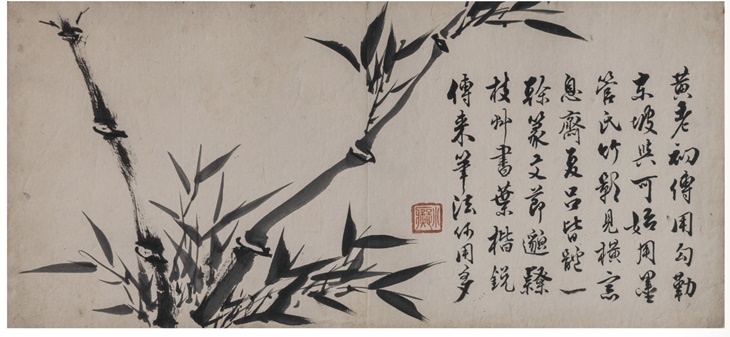 黃老初傳用勾勒
东坡與可始用墨
管氏竹影見橫窓
息齋夏呂皆體一
榦篆文節邈隸
枝艸書葉楷銳
傳来筆法何用多